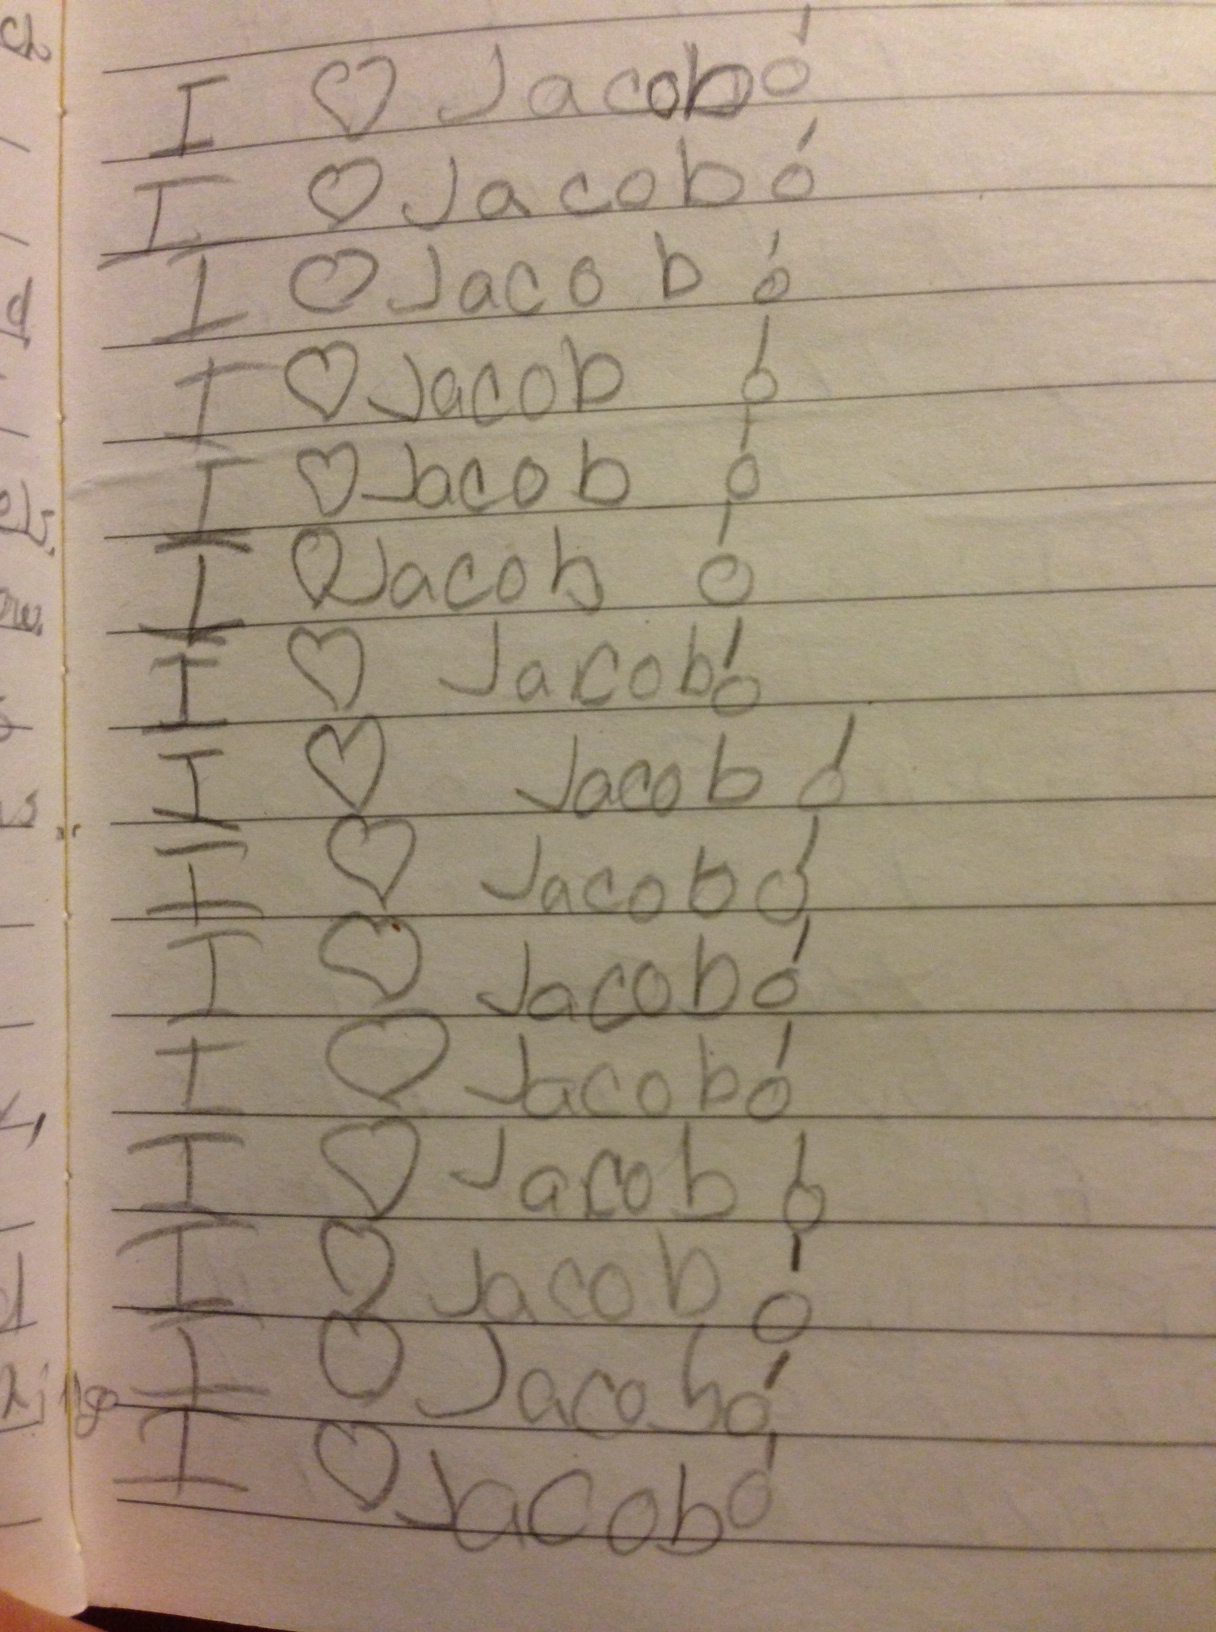 I ♡ Jacob!
I ♡ Jacob!
I ♡ Jacob!
I ♡ Jacob!
I ♡ Jacob!
I ♡ Jacob!
I ♡ Jacob!
I ♡ Jacob!
I ♡ Jacob!
I ♡ Jacob!
I ♡ Jacob!
I ♡ Jacob!
I ♡ Jacob!
I ♡ Jacob!
I ♡ Jacob!